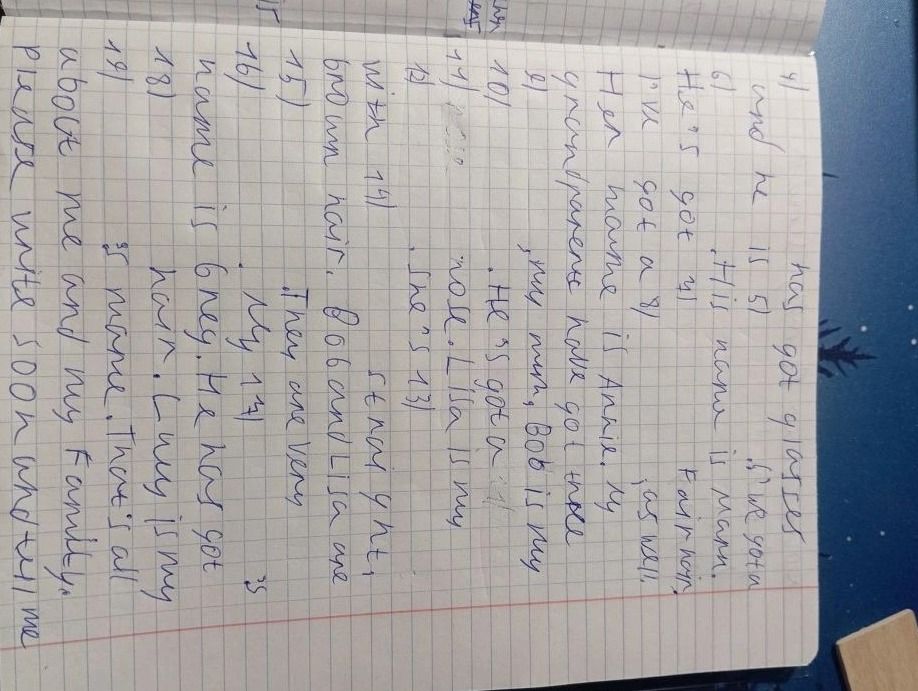 4) has got glasses
and he is 5) I've got a
6) . His name is Mann.
He's got 7) Fair hair.
I've got a 8) , as well.
Her name is Annie. My
grandparents have got three
9) , my mum, Bob is my
10) . He's got a
11) nose. Lisa is my
12) . She's 13)
with 14) straight,
brown hair. Bob and Lisa are
15) . They are very
16) . My 17) 's
name is Greg. He has got
18) hair. Lucy is my
19) 's name. That's all
about me and my Family.
Please write soon and tell me